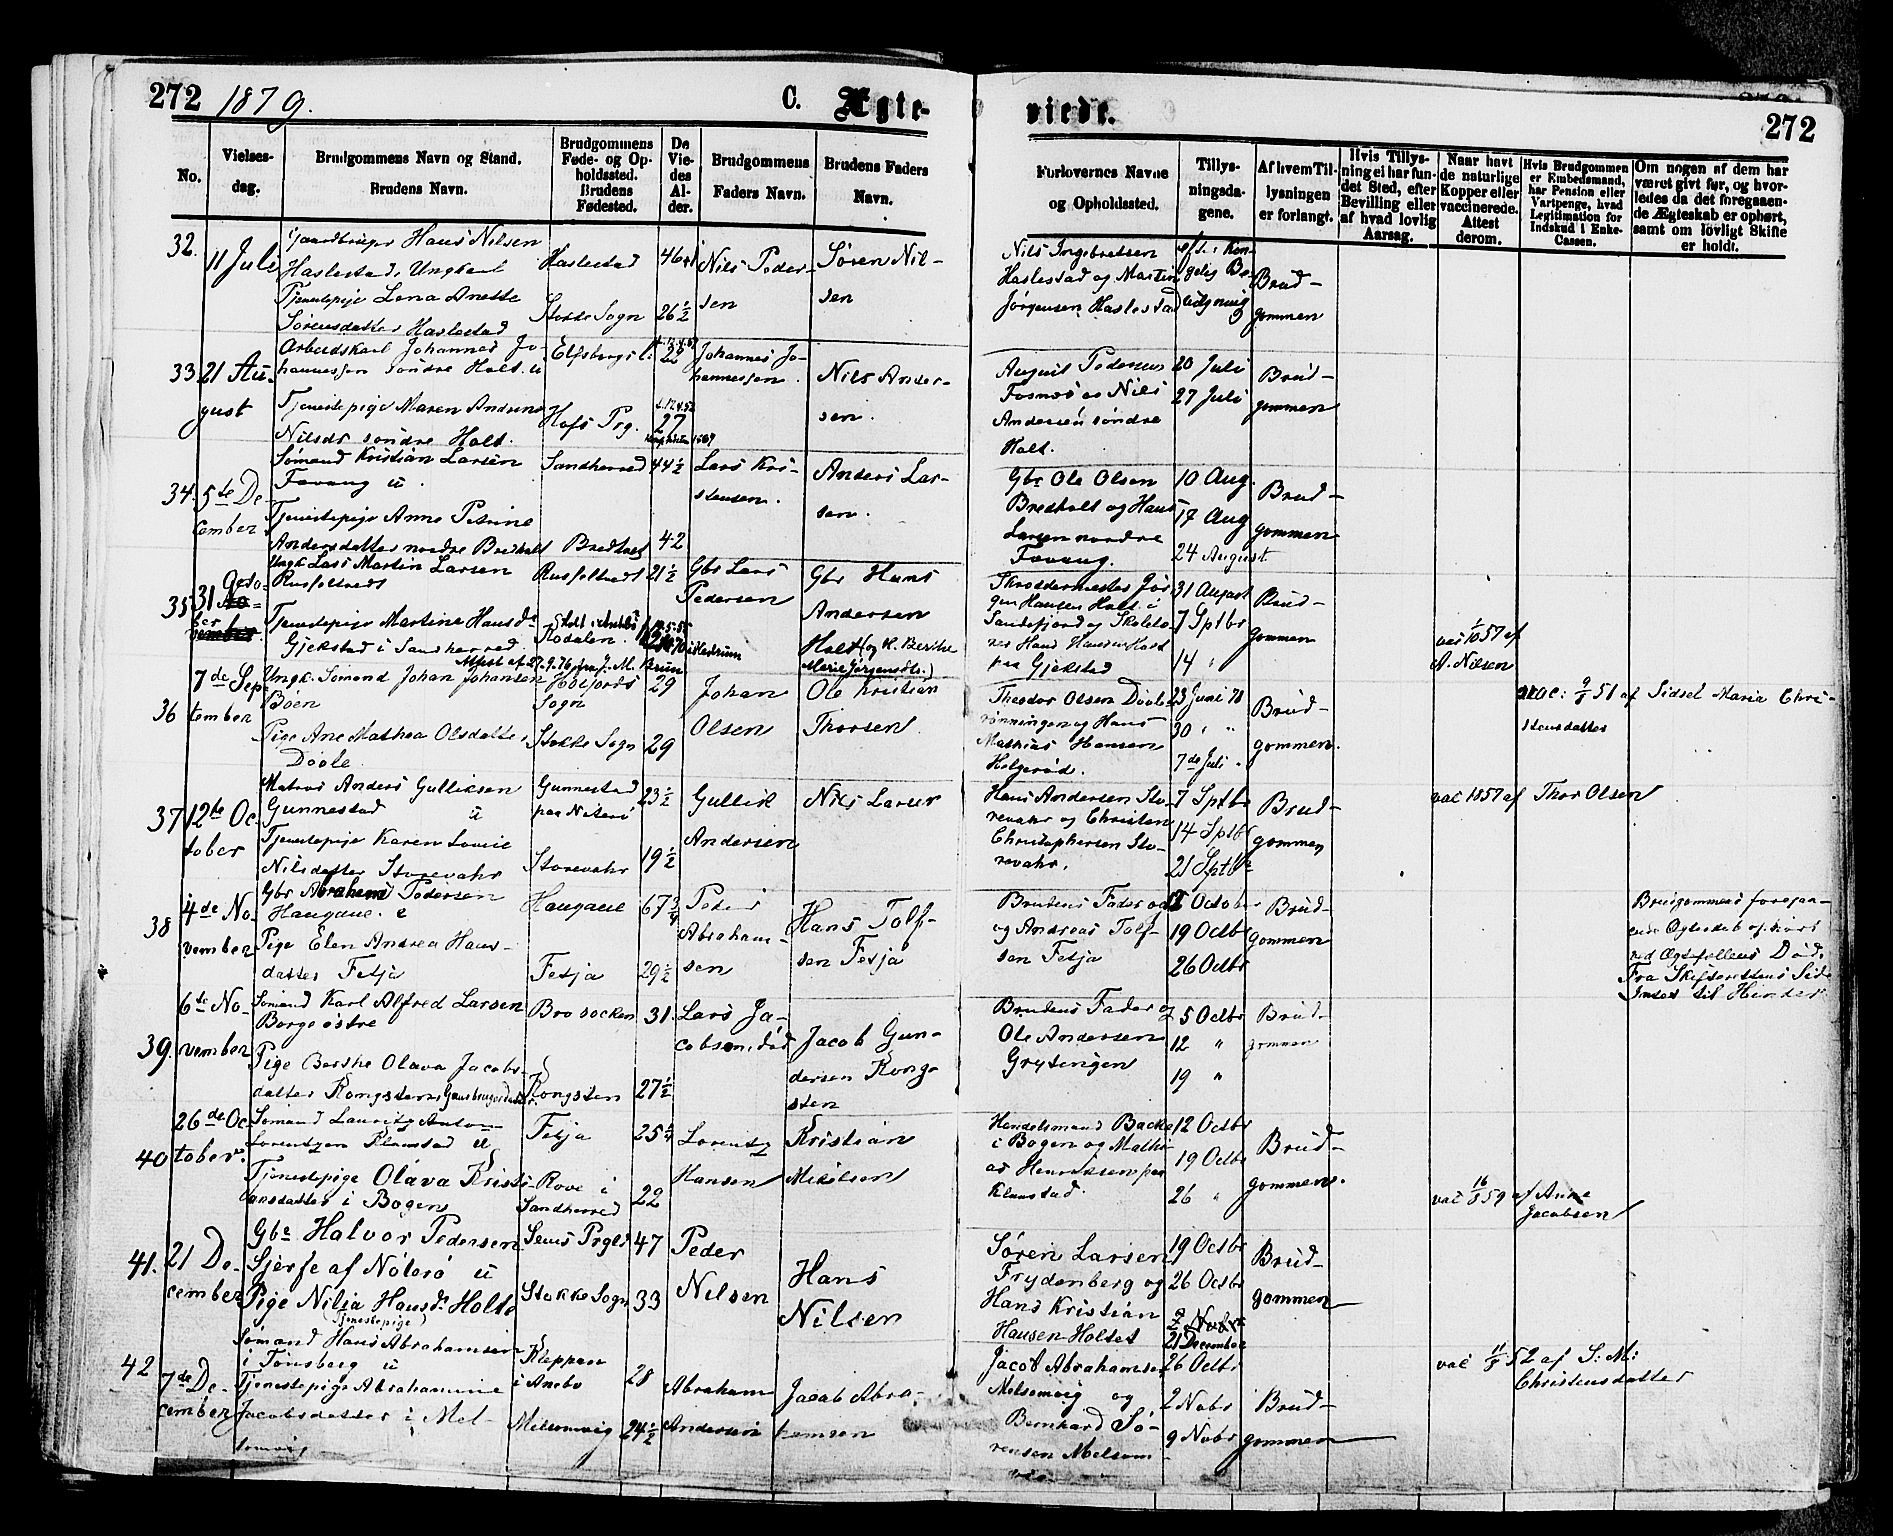 272 1879. C. Ægte-
No.
Vielses-
dag.
Brudgommens Navn og Stand.
Brudens Navn.
Brudgommens
Føde- og Op-
holdssted.
Brudens
Fødested.
De
Vie-
des
Al-
der.
Brudgommens
Faders Navn.
Brudens Faders
Navn.
viede. 272
Forlovernes Navne
og Opholdssted.
Tillys-
ningsda-
gene.
Af hvem Til-
lysningen
er forlangt.
Hvis Tillys-
ning ei har fun-
det Sted, efter
Bevilling eller
af hvad lovlig
Aarsag.
Naar havt
de naturlige
Kopper eller
vaccinerede.
Attest
derom.
Hvis Brudgommen
er Embedsmand,
har Pension eller
Vartpenge, hvad
Legitimation for
Indskud i Enke-
Cassen.
Om nogen af dem har
været givt før, og hvor-
ledes da det foregaaen-
de Ægteskab er ophørt,
samt om lovligt Skifte
er holdt.
32.
11 Juli
Gaardbruger Hans Nilsen
Haslestad, Ungkarl
Tjenestepige Lena Anette
Sørensdatter Haslestad
Haslestad
Stokke Sogn
26½
Nils Peder-
sen
Søren Nil-
sen
Nils Ingebretsen
Haslestad og Martin
Jørgensen Haslestad
Brud-
gommen
33
21 Au-
gust
Arbeidskarl Johannes Jo-
hannessen søndre Holt. u
Tjenestepige Maren Andrine
Nilsdr søndre Holt.
Elfsborgs l:
Hofs Prg.
22
27
Johannes Jo-
hannessen.
Nils Ander-
sen.
August Pedersen
Fosnæs og Nils
Andersen søndre
Holt.
20 Juli
27 Juli
Brud-
gommen
34.
5te De-
cember
Sømand Kristian Larsen
Fevang u.
Tjenestepige Anne Petrine
Andersdatter nordre Bredholt
Sandherred
Bredholt
44½
42
Lars Kri-
stensen.
Anders Lar-
sen.
Gbr Ole Olsen
Bredholt og Hans
Larsen nordre
Fevang.
10 Aug.
17 Aug
24 August
Brud-
gommen
35
31 Octo-
ber
Ungk. Lars Martin Larsen
Rusfeltvedt
Tjenestepige Martine Hansdr
Gjekstad i Sandherred
Rusfeltvedt
Rodalen.
21½
Gbr Lars
Pedersen
Gbr Hans
Andersen
Holt (og K. Berthe
Marie Jørgensdtr.)
Skræddermester Jør-
gen Hansen Holt i
Sandefjord og Skolelæ-
rer Hans Hansen Holt
paa Gjekstad
31 August
7 Sptbr
14 "
Brud-
gommen
A. Nilsen
36
7de Sep-
tember
Ungk. Sømand Johan Johansen
Bøen
Pige Ane Mathea Olsdatter
Døvle
Attest af 27.9.76 fra J. M. Bruun
Sogn
Stokke Sogn
29
29
Johan
Olsen
Ole Kristian
Thorsen
Theodor Olsen Døvle-
rønningen og Hans
Mathias Hansen
Helgerød.
23 Juni 78
30 " "
7de Juli "
Brud-
gommen.
af Sidsel Maria Chri-
stensdatter
37
12te Oc-
tober
Matros Anders Gulliksen
Gunnestad u
Tjenestepige Karen Lovise
Nilsdatter Storevahr
Gunnestad
paa Nøterø
Storevahr
23½
19½
Gullik
Andersen
Nils Larsen
Hans Andersen Sto-
revahr og Christen
Christophersen Sto-
revahr.
7 Sptbr
14 Sptbr
21 Sptbr
Brud-
gommen
vac 1857 af Thor Olsen
38
4de No-
vember
Gbr Abraham Pedersen
Haugane. e
Pige Elen Andrea Hans-
datter Fetja
Haugane
Fetja
67¾
29½
Peder
Abraham-
sen
Hans Tolf-
sen Fetja
Brudens Fader
og Andreas Tolf-
sen Fetja
October
19 Octbr
26 Octbr
Brud-
gommen
Brudgommens foregaa-
ende Ægteskab ophørt
ved Ægtefællens Død.
Fra Skifterettens Side
Intet til Hinder
39.
6te No-
vember
Sømand Karl Alfred Larsen
Borge østre
Pige Berthe Olava Jacobs-
datter Rongsten, Gaardbrugerdatter
Brosocken
Rongsten
31.
27½
Lars Ja-
cobsen, død
Jacob Gun-
dersen Rong-
sten
Brudens Fader og
Ole Andersen
Grytingen
5 Octbr
12 "
19 "
Brud-
gommen
40
26de Oc-
tober.
Sømand Lauritz Anton
Lorentzen Klavestad u
Tjenestepige Olava Kristi-
ansdatter i Bogen
Fetja
Rove i
Sandherred
22
Lorentz
Hansen
Kristian
Mikelsen
Handelsmand Backe
i Bogen og Mathi-
as Henriksen paa
Klavestad.
12 Octbr
19 Octbr
26 "
Brud-
gommen.
af Anne
Jacobsen
41.
21 De-
cember
Gbr Halvor Pedersen
Gjerfe af Nøterø u
Pige Nilia Hansdr Holte
(Tjenestepige)
Sems Prgld
Stokke Sogn
47
33
Peder
Nilsen
Hans
Nilsen
Søren Larsen
Frydenberg og
Hans Kristian
Hansen Holtet
19 Octbr
26 Octbr
21 December
Brud-
gommen
42
7de De-
cember
Sømand Hans Abrahamsen
i Tønsberg u
Tjenestepige Abrahamine
Jacobsdatter i Mel-
somvig
Kleppan
i Anebo
Melsomvig
28
24½
Abraham
Andersen
Jacob Abra-
hamsen
Jacob Abrahamsen
Melsomvig og
Bernhard Sø-
rensen Melsom-
26 Octbr
2 Novbr
9 Novbr
Brud-
gommen
af S: M:
Christensdatter